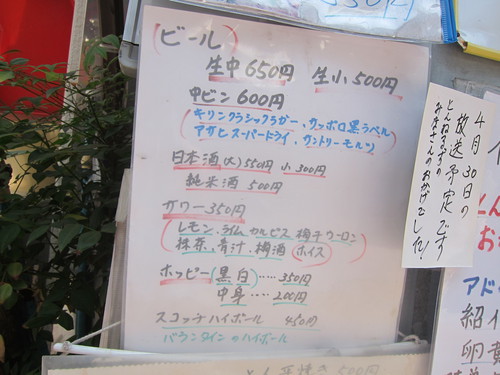 ビール
生中 650円 生小 500円
中ビン 600円
(キリンクラシックラガー、サッポロ黒ラベル
アサヒスーパードライ、サントリーモルツ)
日本酒(大) 550円 小 300円
純米酒 500円
サワー 350円
(レモン、ライム カルピス 梅干 ウーロン
抹茶、青汁、梅酒 ホイス)
ホッピー(黒 白)‥‥ 350円
中身 ‥‥ 200円
スコッチハイボール 450円
バランタインのハイボール
4月30日の
放送予定です
とんねるずの
みなさんのおかげでした!
アド
紹イ
卵黄
500円